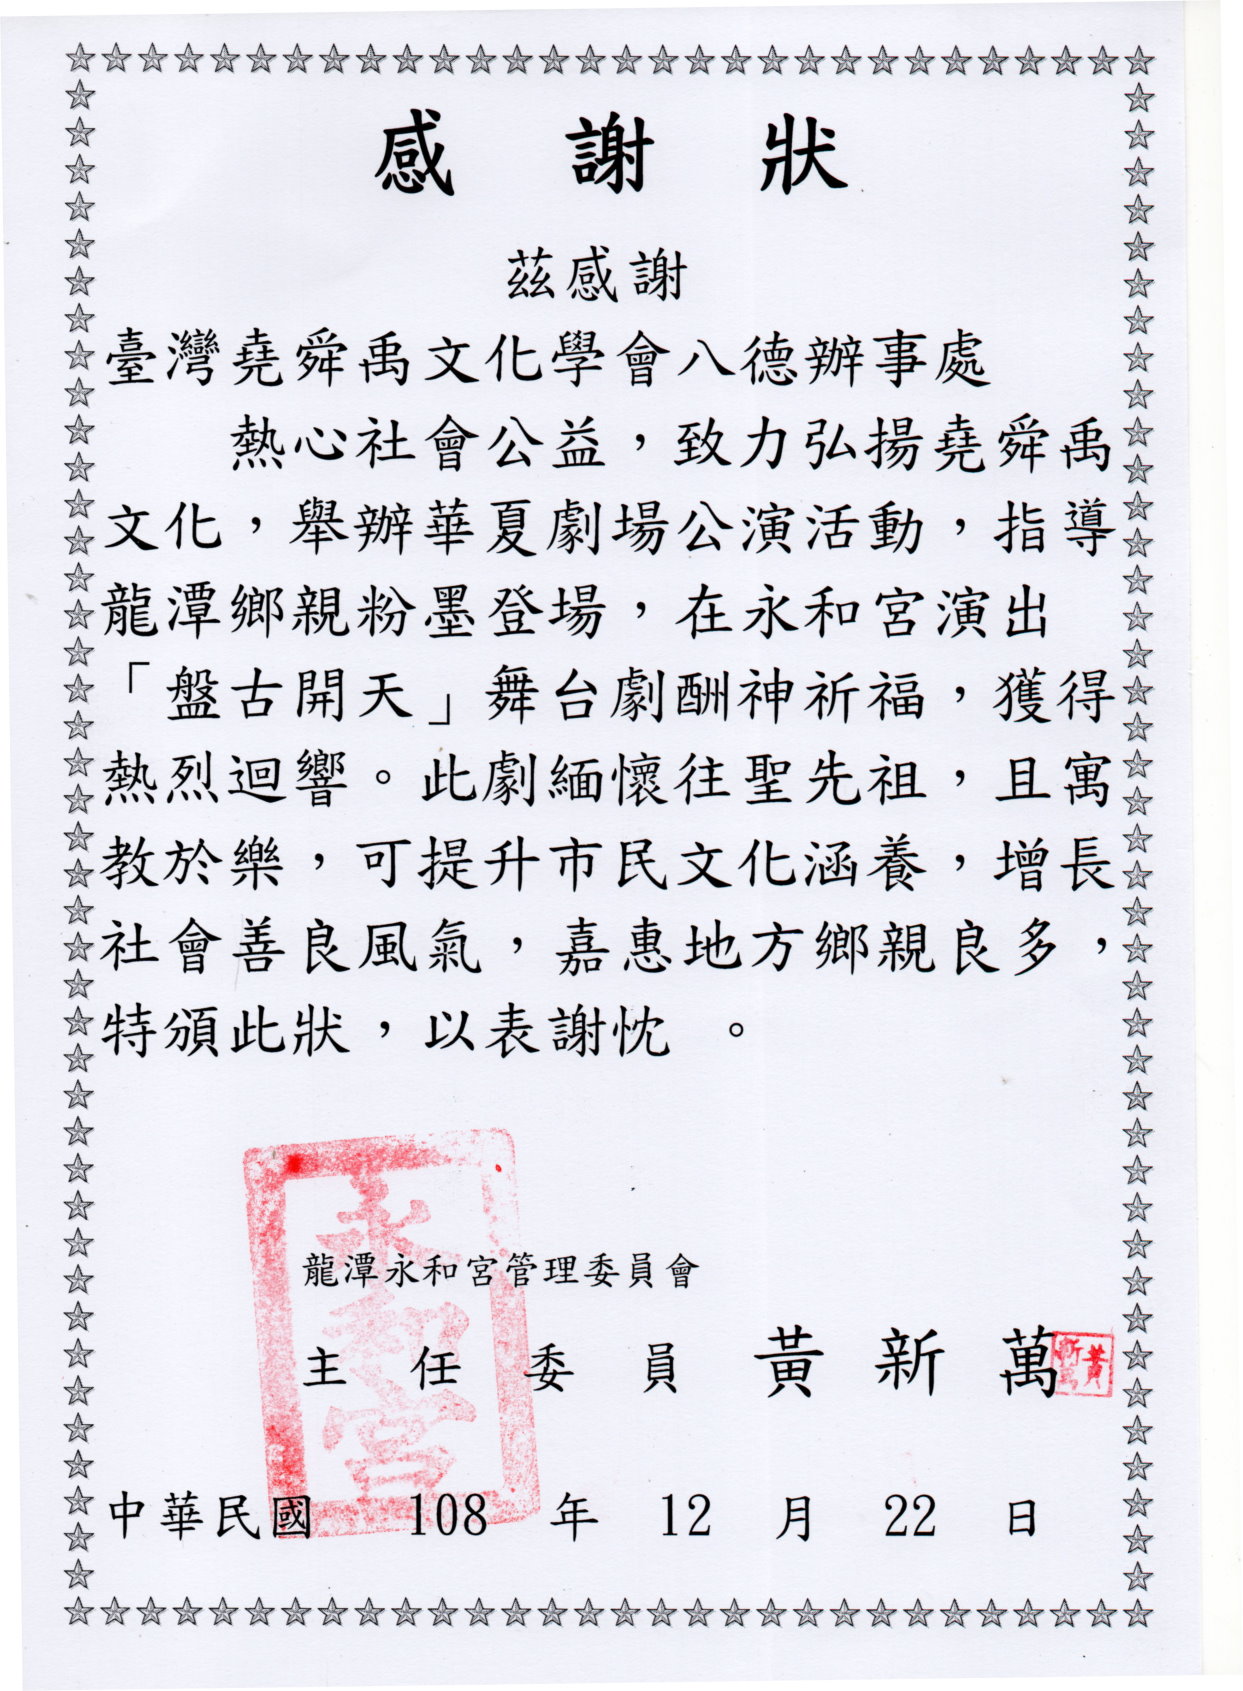 感謝狀
茲感謝
臺灣堯舜禹文化學會八德辦事處
熱心社會公益，致力弘揚堯舜禹
文化，舉辦華夏劇場公演活動，指導
龍潭鄉親粉墨登場，在永和宮演出
「盤古開天」舞台劇酬神祈福，獲得
熱烈迴響。此劇緬懷往聖先祖，且寓
教於樂，可提升市民文化涵養，增長
社會善良風氣，嘉惠地方鄉親良多，
特頒此狀，以表謝忱 。
永和宮
龍潭永和宮管理委員會
主任委員 黃新萬
黃新萬
中華民國 108 年 12 月 22 日